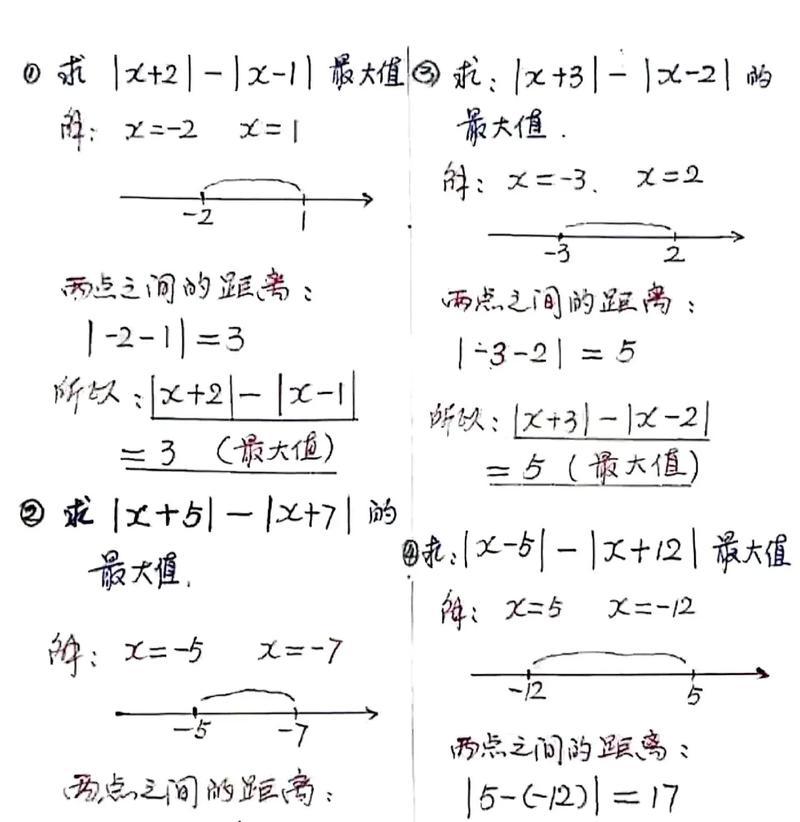 ① 求 |x+2|-|x-1| 最大值
解: x=-2 x=1
-2 1
两点之间的距离:
|-2-1|=3
所以:|x+2|-|x-1|
=3 (最大值)
② 求 |x+5|-|x+7| 的
最大值.
解: x=-5 x=-7
-5 -7
两点之间的距离:
③ 求: |x+3|-|x-2| 的
最大值.
解: x=-3. x=2
-3 2
两点之间的距离:
|-3-2| = 5
所以: |x+3|-|x-2|
=5 (最大值)
④求:|x-5|-|x+12| 最大值
解: x=5 x=-12
-12 5
两点之间的距离:
|5-(-12)|=17